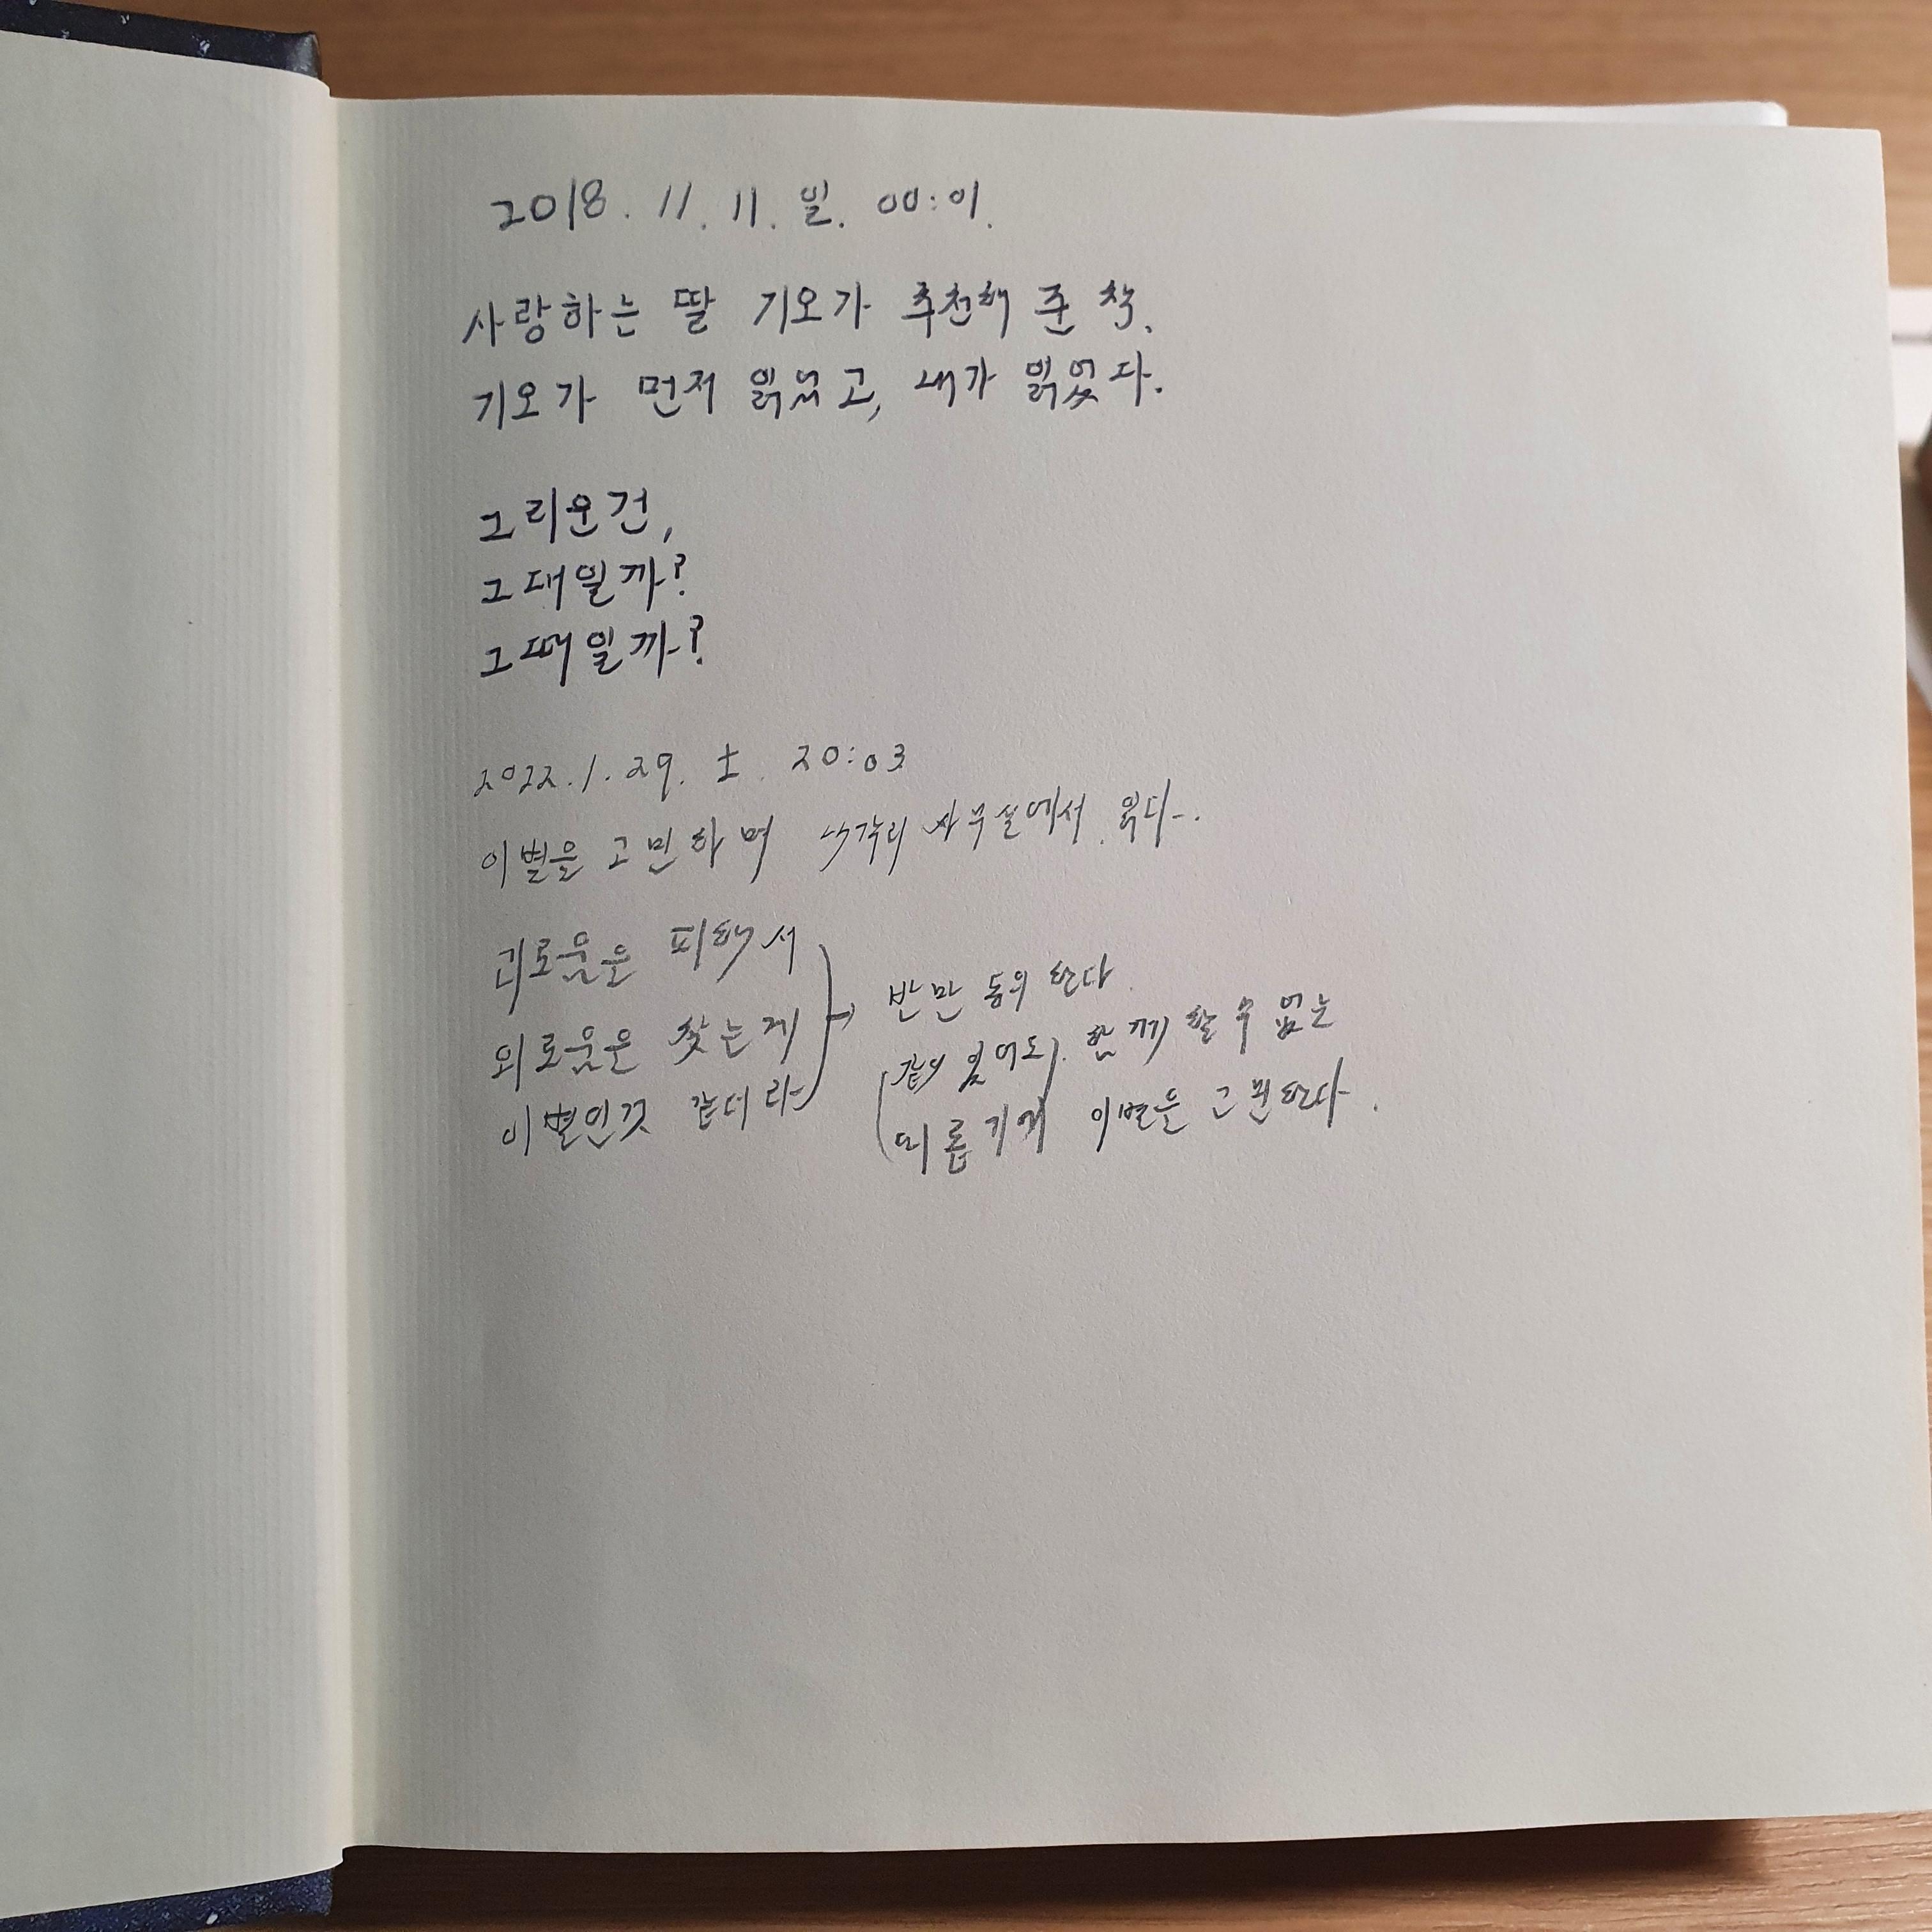 2018. 11. 11. 일. 00:01.
사랑하는 딸 기오가 추천해 준 책.
기오가 먼저 읽었고, 내가 읽었다.
그리운건,
그대일까?
그때일까?
2022. 1. 29. 土. 20:03
이별을 고민하며 사무실에서 읽다.
괴로움을 피해서
외로움을 찾는게
이별인것 같더라
→ 반만 동의 한다.
같이 있어도, 함께 할 수 없는
외롭기에 이별을 고민한다.